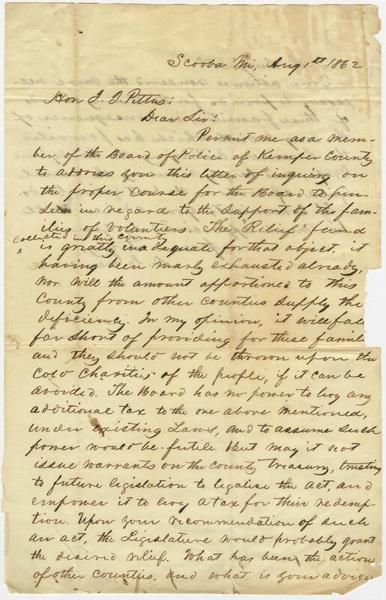 Scooba Mi, Aug 1st 1862
Hon J. J. Pettus:
Dear Sir:
Permit me as a mem-
ber of the Board of Police of Kemper County
to address you this letter of inquiry on
the proper course for the Board to pur-
sue in regard to the support of the fam-
ilies of Volunteers. The Relief fund
collected in this County
is greatly inadequate for that object, it
having been nearly exhausted already,
nor will the amount apportioned to this
County from other counties supply the
deficiency. In my opinion, it will fall
far short of providing for these families
and they should not be thrown upon the
cold Charities of the people, if it can be
avoided. The Board has no power to levy any
additional tax to the one above mentioned,
under existing Laws, and to assume such
power would be futile But may it not
issue warrants on the County Treasury, trusting
to future legislation to legalise the act, and
empower it to levy a tax for their redemp-
tion. Upon your recommendation of such
an act, the Legislature would probably grant
the desired relief. What has been the action
of other Counties, and what is your advice